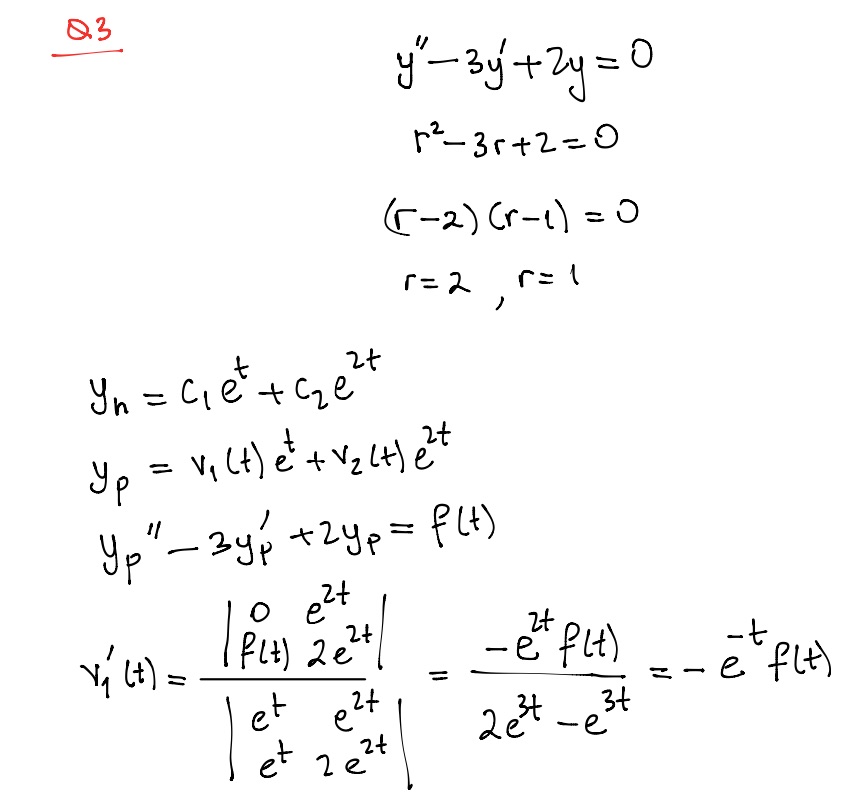 Q3
y'' - 3y' + 2y = 0
r² - 3r + 2 = 0
(r-2)(r-1) = 0
r = 2 , r = 1
yₕ = c₁eᵗ + c₂e²ᵗ
yₚ = v₁(t)eᵗ + v₂(t)e²ᵗ
yₚ'' - 3yₚ' + 2yₚ = f(t)
v₁'(t) = |0 e²ᵗ; f(t) 2e²ᵗ| / |eᵗ e²ᵗ; eᵗ 2e²ᵗ| = -e²ᵗf(t) / (2e³ᵗ - e³ᵗ) = -e⁻ᵗf(t)